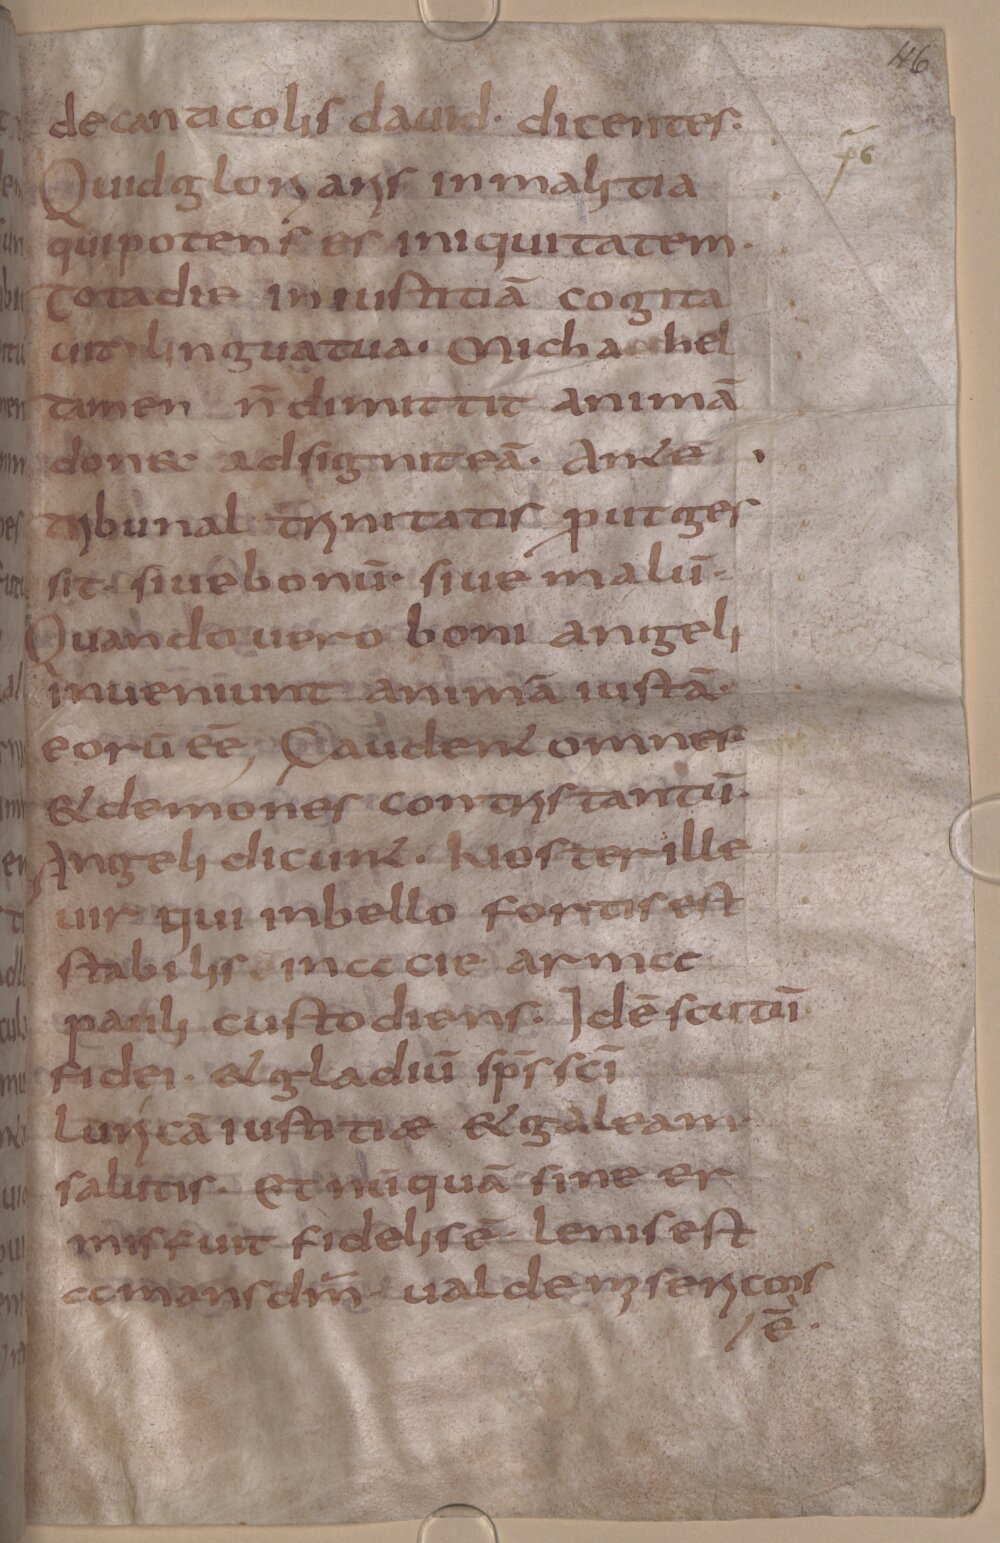 46
de canticolis dauid· dicentes·
p̃s
Quid gloriaris in malitia
qui potens es iniquitatem·
Tota die iniustitiā cogita
uit lingua tua· Michahel
tamen n̄ dimittit animā
donec adsignit eā· Ante
tribunal trinitatis p̱ut ges
sit· siue bonū· siue malū·
Quando uero boni angeli
inueniunt animā iustā·
eorū eē, Gaudent omnes
& demones contristantū·
Angeli dicunt· Noster ille
uir qui in bello fortis est
stabilis in acie arma
pauli custodiens· Idē scutū
fidei· & gladiū sp̄s sc̄i
luricā iustitiæ & galeam·
salutis· Et nūquā sine er
mis fuit fidelis ē· lenis est
amans dm̄· ualde misericors
ē·